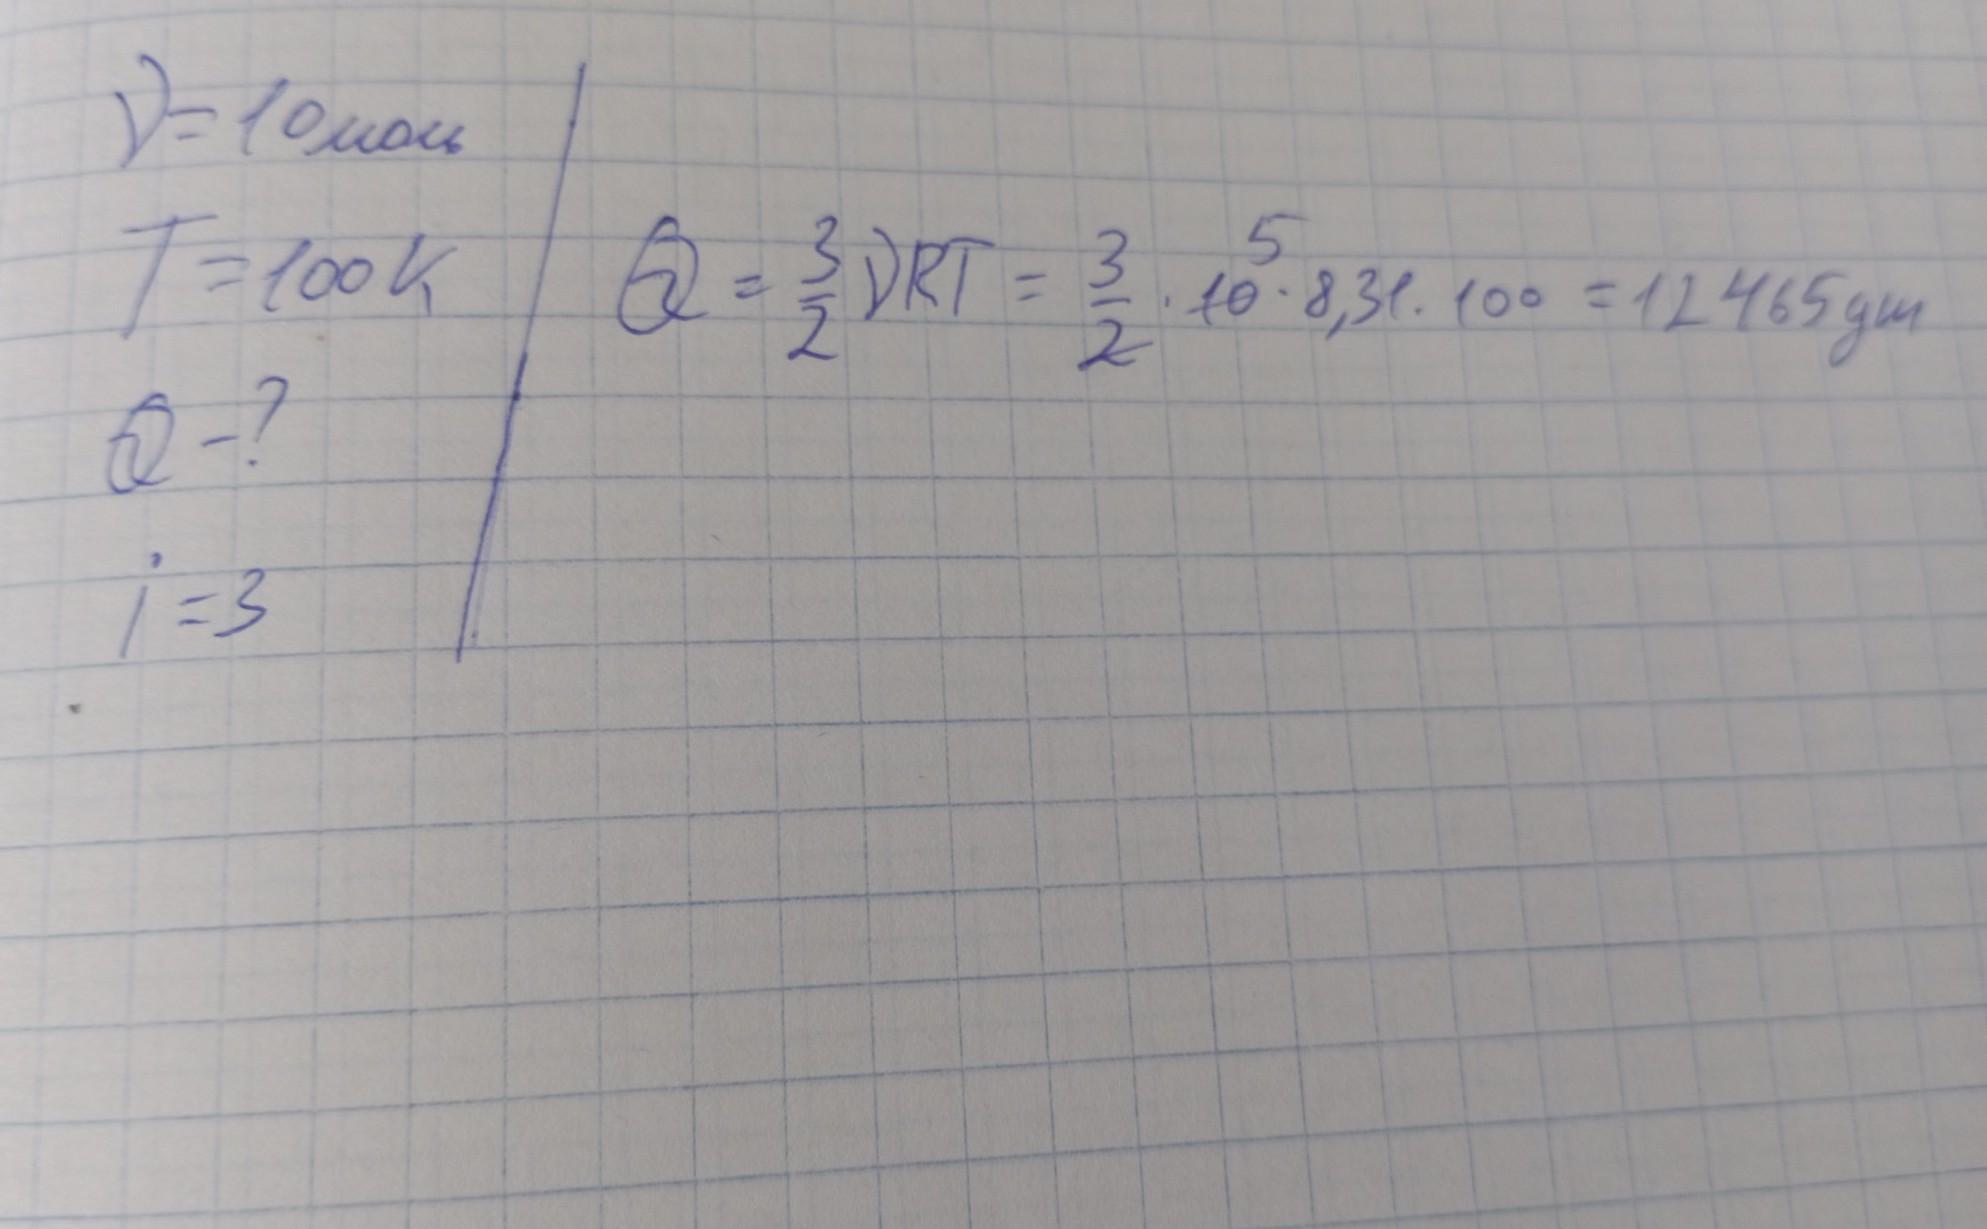 ν=10моль
T=100К
Q-?
i=3
Q = 3/2 νRT = 3/2 · 10 5 · 8,31 · 100 = 12465 дж